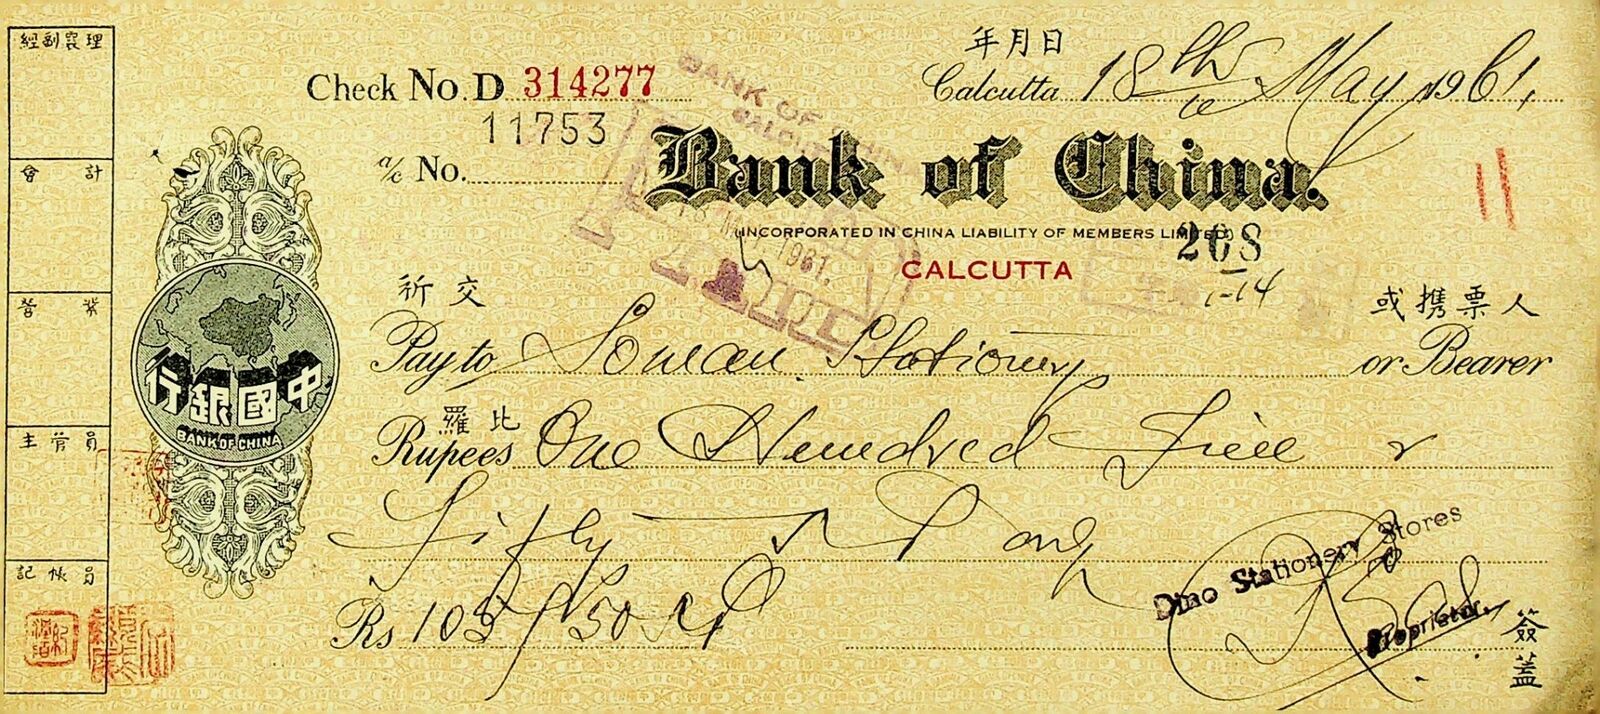 經副襄理
會計
營業
主管員
記帳員
年月日
Check No. D 314277
Calcutta 18th May 1961.
11753
a/c No.
BANK OF CHINA
CALCUTTA
Bank of China.
INCORPORATED IN CHINA LIABILITY OF MEMBERS LIMITED
1961.
268
CALCUTTA
1-14
祈交
或携票人
Pay to Stationery or Bearer
中國銀行
BANK OF CHINA
羅比
Rupees One Hundred Five &
Fifty only
Dino Stationery Stores
Rs 105/50
Proprietor.
簽蓋